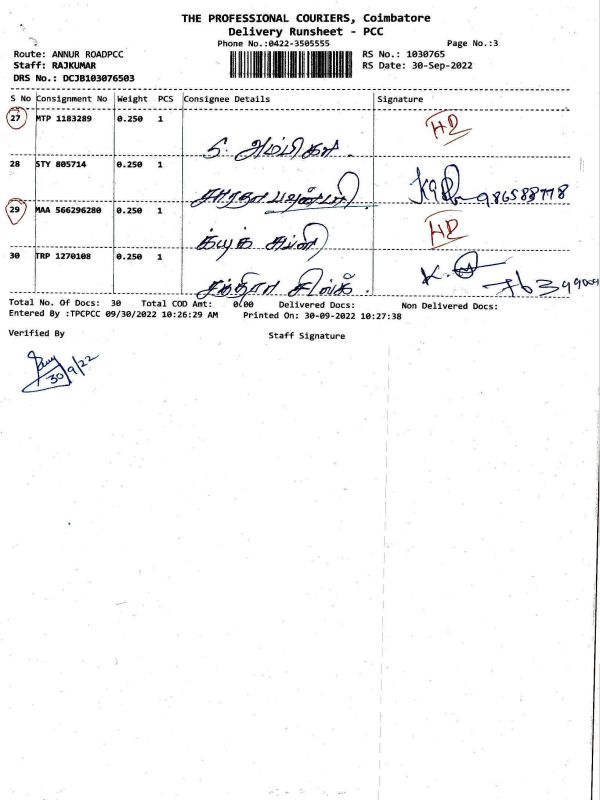 THE PROFESSIONAL COURIERS, Coimbatore
Delivery Runsheet - PCC
Phone No.:0422-3505555 Page No.:3
Route: ANNUR ROADPCC RS No.: 1030765
Staff: RAJKUMAR RS Date: 30-Sep-2022
DRS No.: DCJB103076503
S No Consignment No Weight PCS Consignee Details Signature
27 MTP 1183289 0.250 1 HD
S. அம்பிகா.
28 STY 805714 0.250 1
சாரதா
29 MAA 566296280 0.250 1 HD
30 TRP 1270108 0.250 1 K.
Total No. Of Docs: 30 Total COD Amt: 0.00 Delivered Docs: Non Delivered Docs:
Entered By :TPCPCC 09/30/2022 10:26:29 AM Printed On: 30-09-2022 10:27:38
Verified By Staff Signature
30/9/22